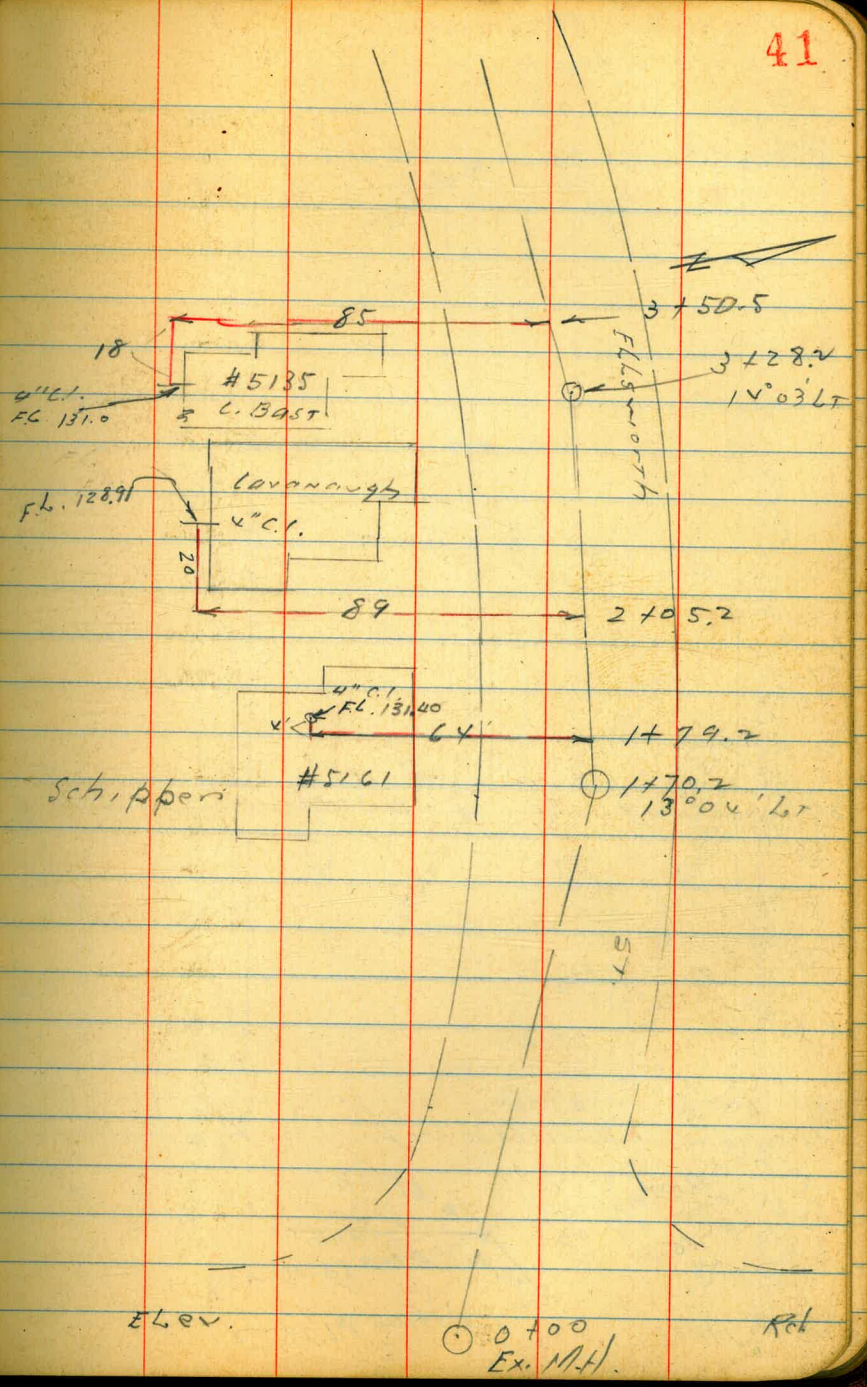 41
85
3+50.5
18
#5135
L. BAST
4" C.I.
F.L. 131.0
3+28.2
14°03' LT
Ellsworth
Cavanaugh
4" C.I.
F.L. 128.91
20
89
2+05.2
4" C.I.
F.L. 131.40
4'
64'
1+79.2
#5161
1+70.2
13°04' LT
ST.
Elev.
0+00
Ex. M.H.